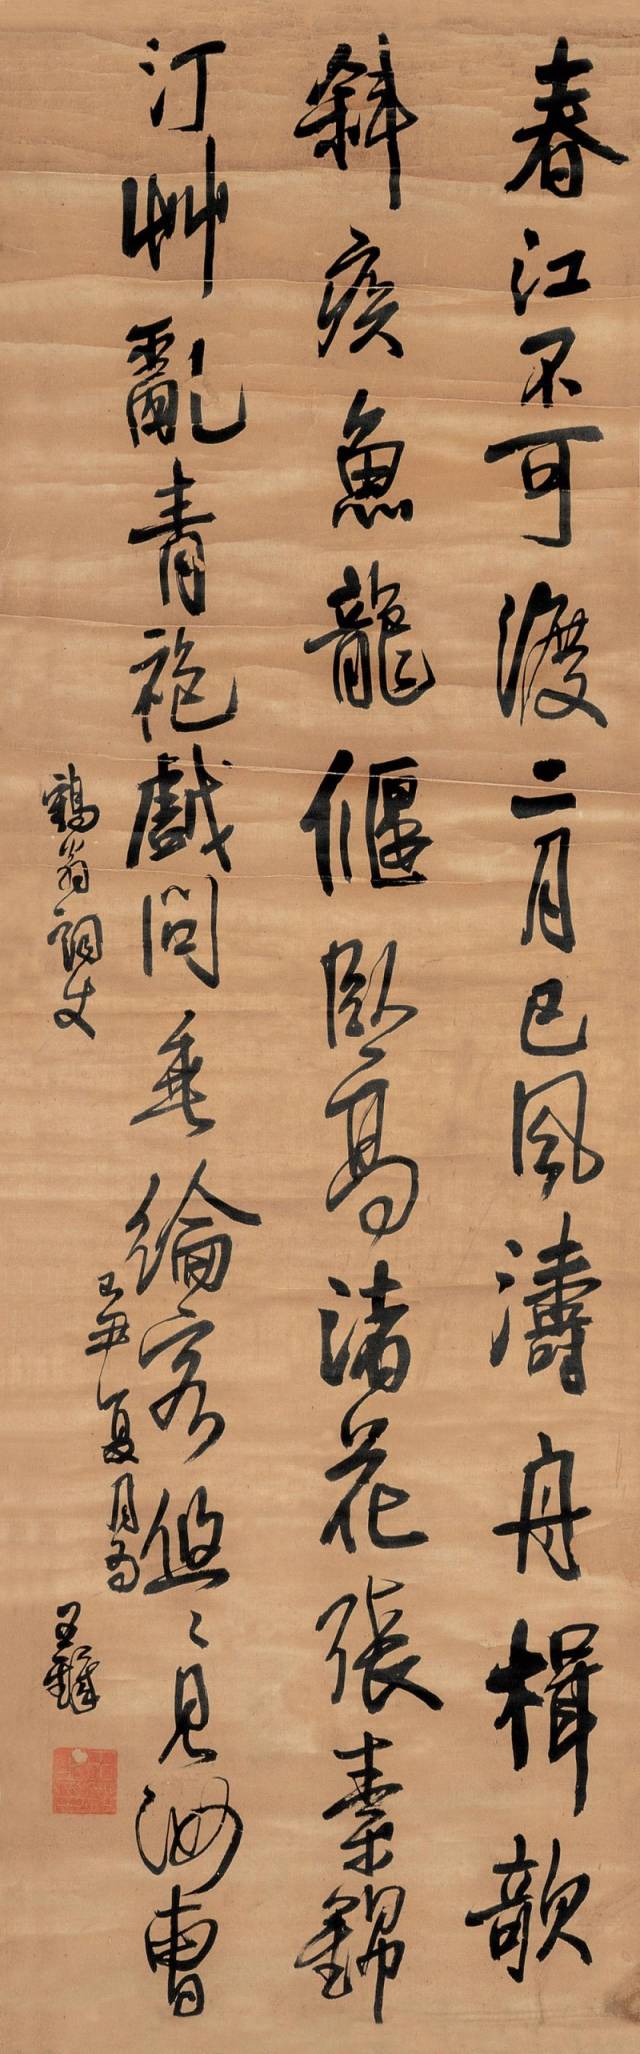 春江不可渡二月已風濤舟楫欹
斜疾魚龍偃卧高渚花張素錦
汀艸亂青袍戲問垂綸客悠〻見汝曹
己丑夏月為
鶴翁詞丈
王鐸